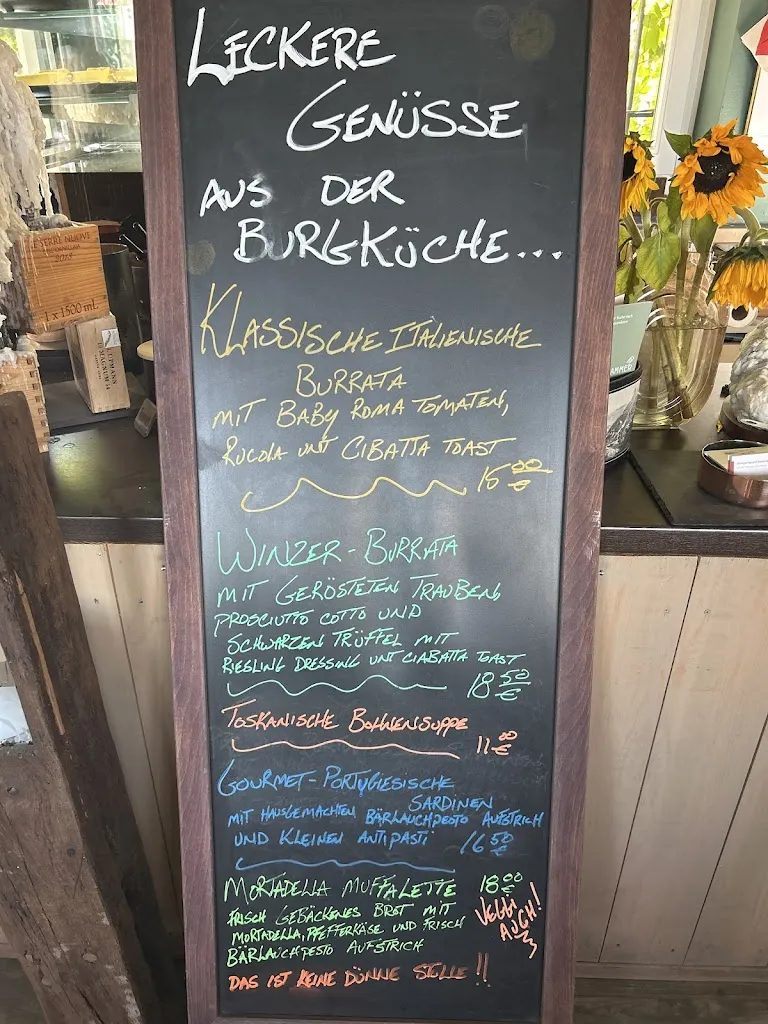 LECKERE
GENÜSSE
AUS DER
BURGKÜCHE...
KLASSISCHE ITALIENISCHE
BURRATA
MIT BABY ROMA TOMATEN,
RUCOLA UNT CIBATTA TOAST
15 00 €
WINZER-BURRATA
MIT GERÖSTETEN TRAUBEN,
PROSCIUTTO COTTO UND
SCHWARZEN TRÜFFEL MIT
RIESLING DRESSING UNT CIABATTA TOAST
18 50 €
TOSKANISCHE BOHNENSUPPE
11 00 €
GOURMET-PORTUGIESISCHE
SARDINEN
MIT HAUSGEMACHTEN BÄRLAUCHPESTO AUFSTRICH
UND KLEINEN ANTIPASTI 16 50 €
MORTADELLA MUFFALETTE 18 00 €
FRISCH GEBÄCKENES BROT MIT
MORTADELLA, PFEFFERKÄSE UND FRISCH
BÄRLAUCHPESTO AUFSTRICH
VEGGI
AUCH!
DAS IST KEINE DÜNNE STULLE!!
2018
1 x 1500 mL